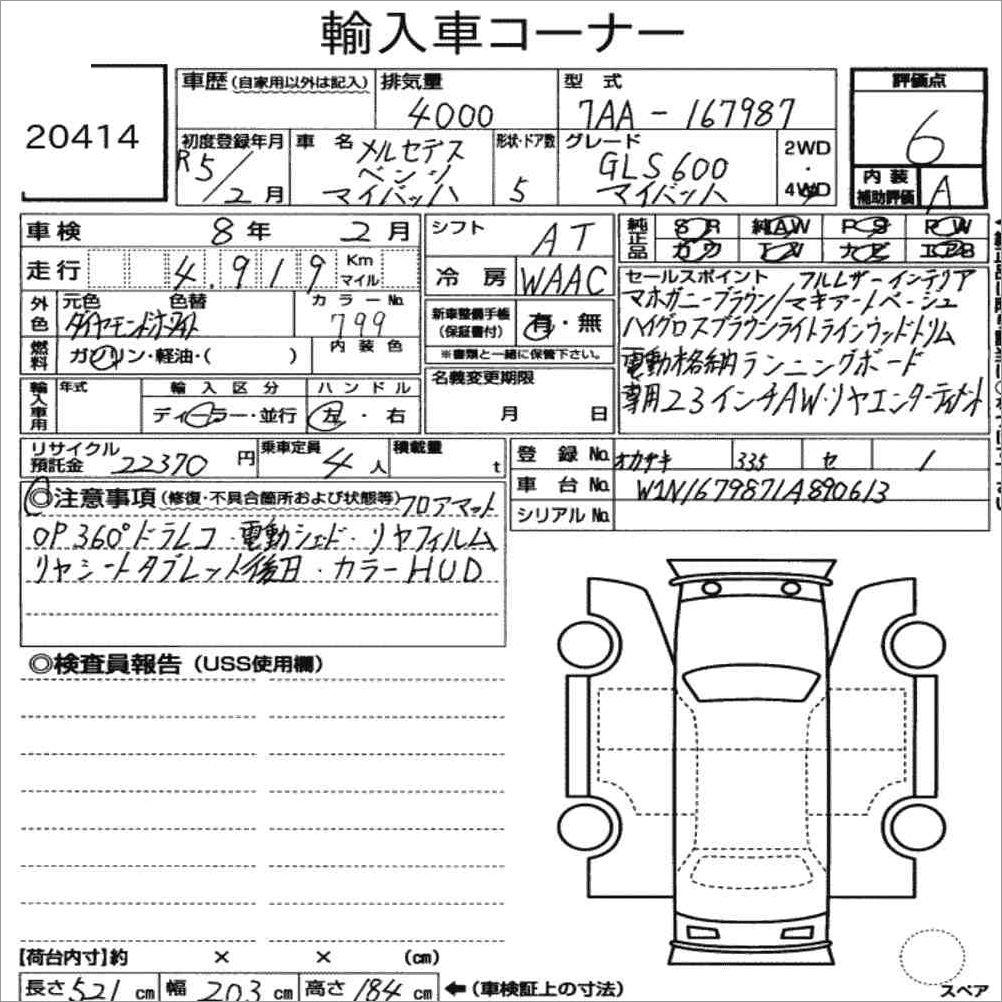 輸入車コーナー
20414
車歴(自家用以外は記入)
排気量
4000
型式
7AA-167987
評価点
6
初度登録年月
R5/2月
車名
メルセデス
ベンツ
マイバッハ
形状・ドア数
5
グレード
GLS600
マイバッハ
2WD
・
4WD
内装
補助評価
A
車検
8年 2月
走行
4,919
Km
マイル
外色
元色 色替
ダイヤモンドホワイト
カラーNo.
799
燃料
ガソリン・軽油・( )
内装色
輸入車用
年式
輸入区分
ディーラー・並行
ハンドル
左・右
シフト
AT
冷房
WAAC
新車整備手帳
(保証書付)
有・無
※書類と一緒に保管下さい。
名義変更期限
月 日
純正品
SR
純AW
PS
PW
カワ
TV
ナビ
エアB
セールスポイント
フルレザーインテリア
マホガニーブラウン/マキアートベージュ
ハイグロスブラウンライトラインウッドトリム
電動格納ランニングボード
専用23インチAW・リヤエンターテイメント
リサイクル
預託金
22370円
乗車定員
4人
積載量
t
登録No.
オカザキ 335 セ 1
車台No.
W1N1679871A890613
シリアルNo.
◎注意事項(修復・不具合箇所および状態等)フロアマット
OP360°ドラレコ・電動シェード・リヤフィルム
リヤシートタブレット後日・カラーHUD
◎検査員報告(USS使用欄)
【荷台内寸】約 × × (cm)
長さ521cm 幅203cm 高さ184cm ←(車検証上の寸法)
スペア